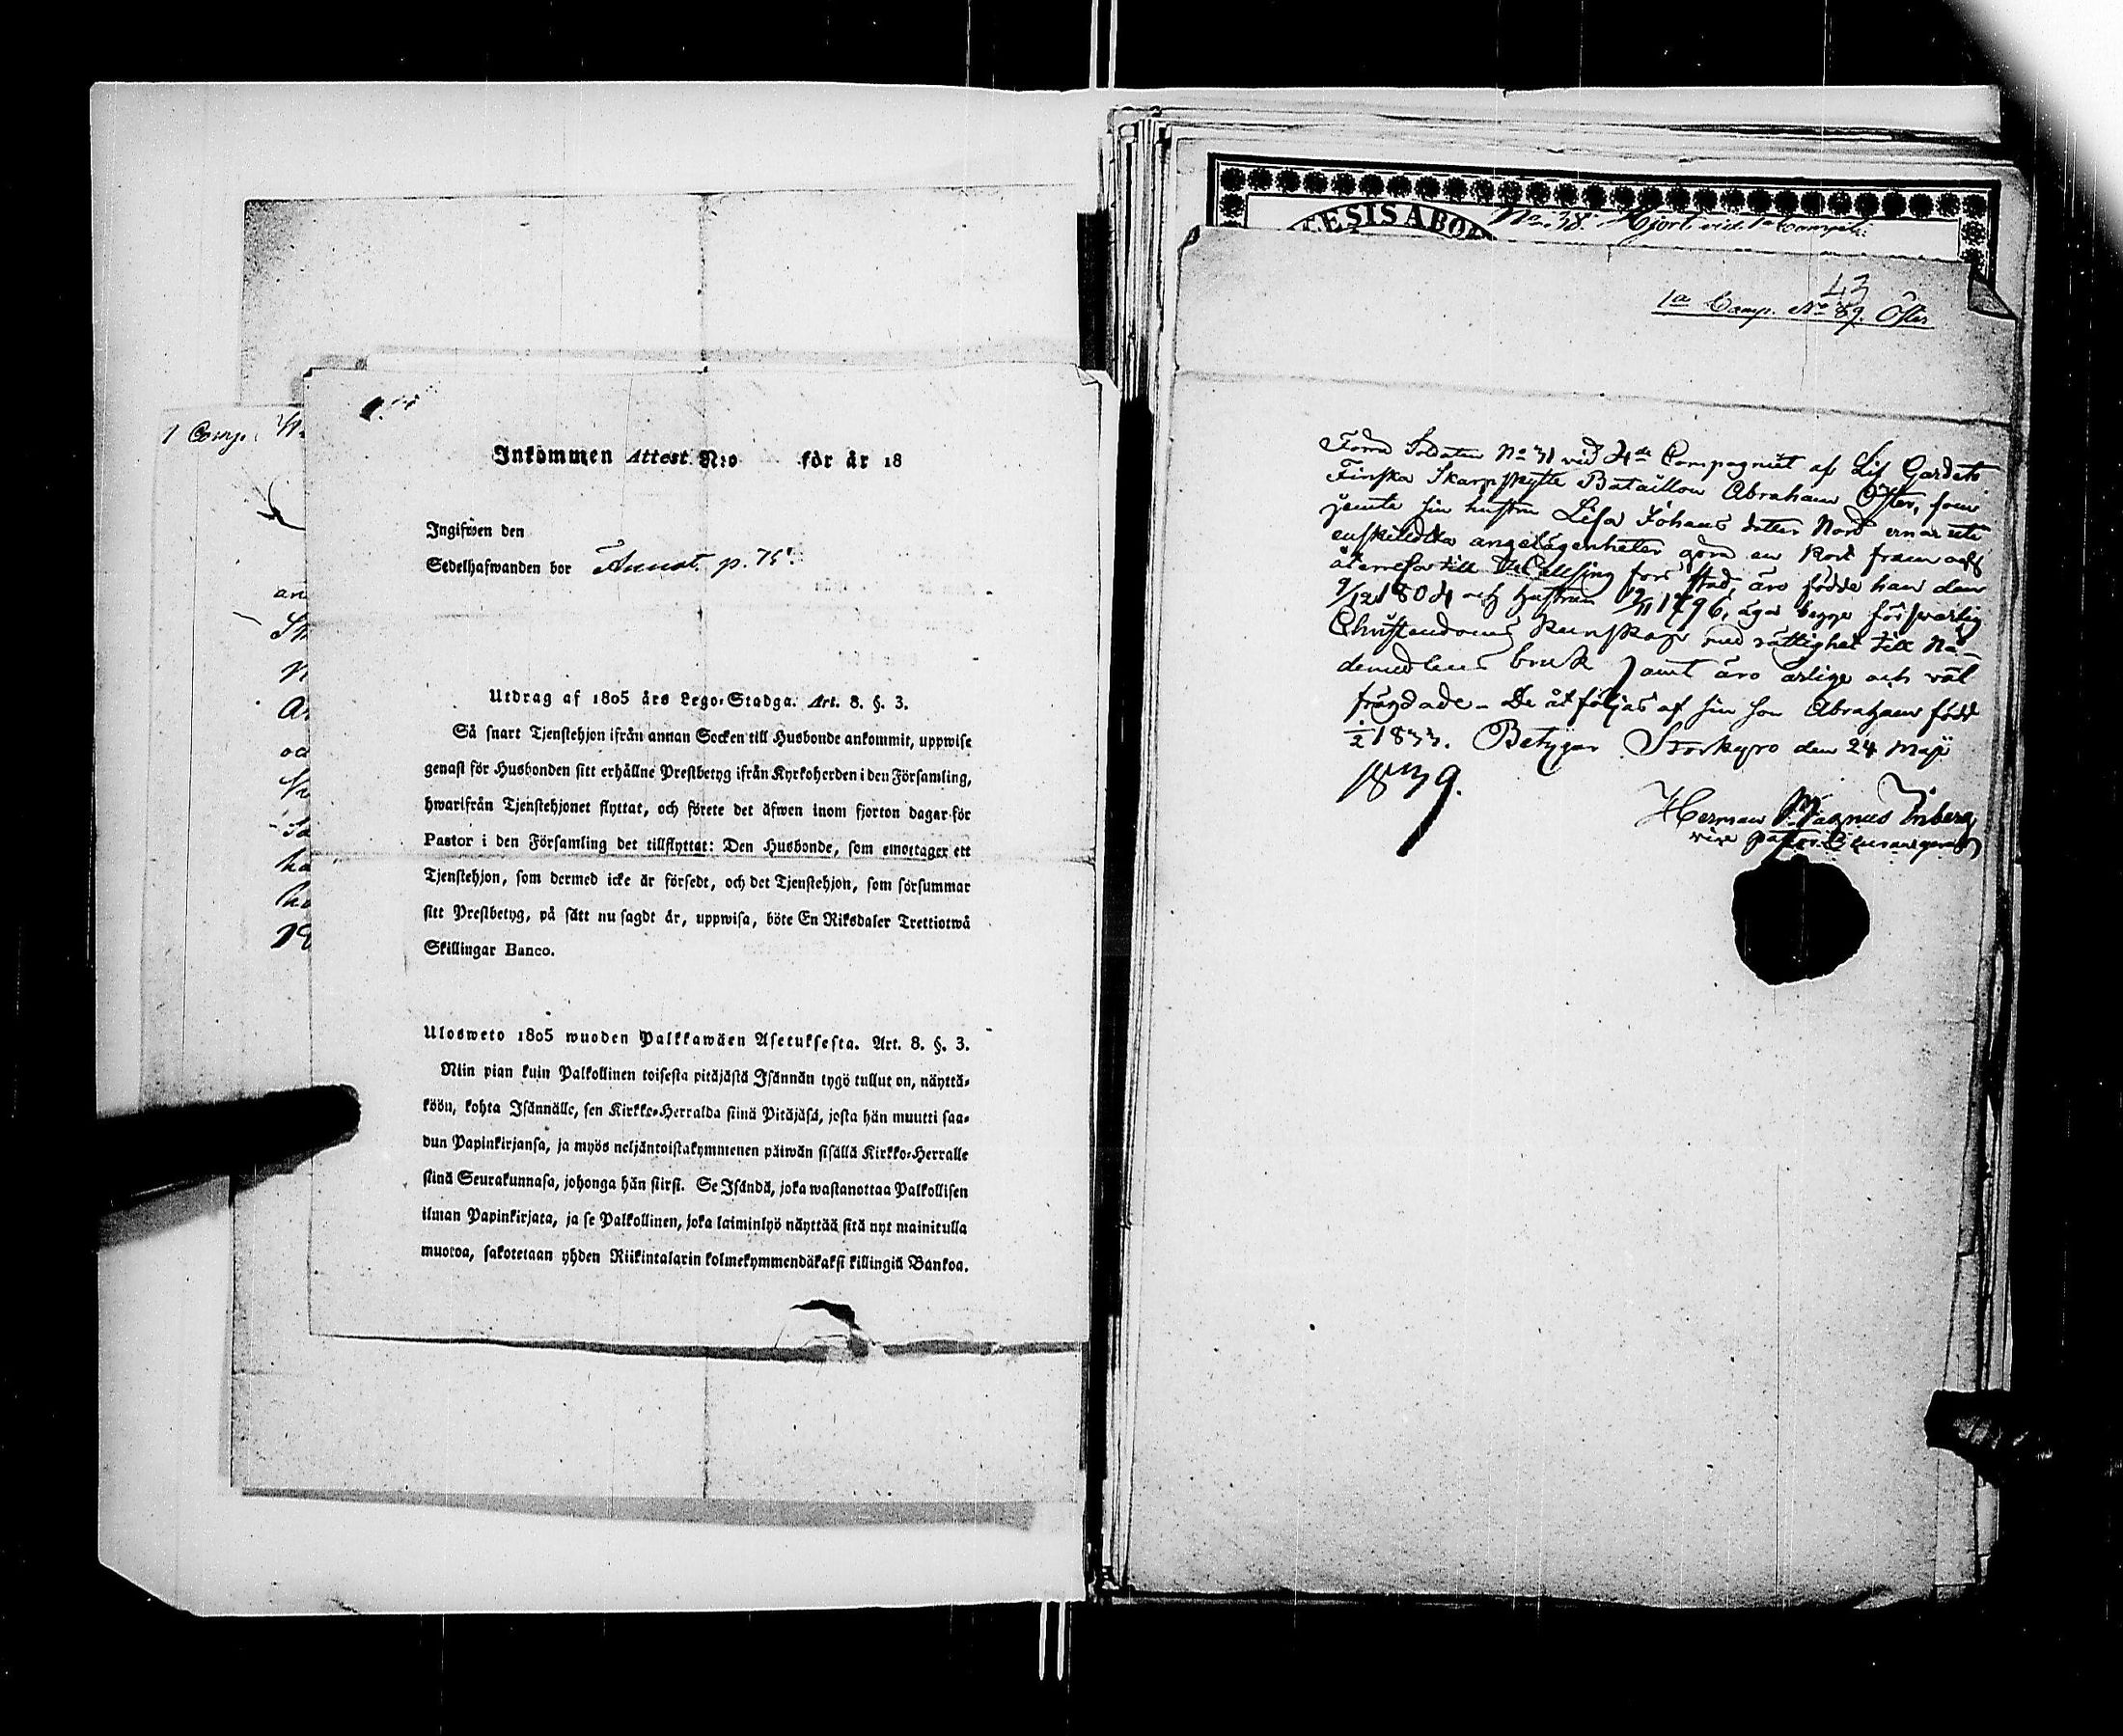 1 Comp.
Inkommen Attest. N:o för år 18
Ingifwen den
Sedelhafwanden bor Annot. p. 75.
Utdrag af 1805 års Lego-Stadga. Art. 8. §. 3.
Så snart Tjenstehjon ifrån annan Socken till Husbonde ankommit, uppwise
genast för Husbonden sitt erhållne Prestbetyg ifrån Kyrkoherden i den Församling,
hwarifrån Tjenstehjonet flyttat, och förete det äfwen inom fjorton dagar för
Pastor i den Församling det tillflyttat: Den Husbonde, som emottager ett
Tjenstehjon, som dermed icke är försedt, och det Tjenstehjon, som försummar
sitt Prestbetyg, på sätt nu sagdt är, uppwisa, böte En Riksdaler Trettiotwå
Skillingar Banco.
Ulosweto 1805 wuoden Palkkawäen Asetuksesta. Art. 8. §. 3.
Niin pian kuin Palkollinen toisesta pitäjästä Isännän tygö tullut on, näyttä-
köön, kohta Isännälle, sen Kirkko-Herralda siinä Pitäjäsä, josta hän muutti saa-
dun Papinkirjansa, ja myös neljäntoistakymmenen päiwän sisällä Kirkko-Herralle
siinä Seurakunnasa, johonga hän siirsi. Se Isändä, joka wastanottaa Palkollisen
ilman Papinkirjata, ja se Palkollinen, joka laiminlyö näyttää sitä nyt mainitulla
muotoa, sakotetaan yhden Riikintalarin kolmekymmendäkaksi killingiä Bankoa.
CESIS ABO
No. 38. Hjort vid 1a Compii:
43
1a Comp. No 89. Öster
Förra Soldaten No 31 vid 4de Compagniet af Lif Gardets
Finska Skarpskytte Bataillon Abraham Öster, som
jemte sin hustru Lisa Johans dotter Nord ernar uti
enskildta angelägenheter göra en Resa fram och
åter till Helsing fors stad, äro födde han den
9/12 1804 och hustrun 19/11 1796, äga begge förswarlig
Christendoms kunskap med rättighet till Nå-
demedlens bruk samt äro ärlige och väl
frägdade - De åtföljas af sin son Abraham född
1/2 1833. Betygar Storkyro den 24 Maji
1839.
Herman Magnus
vice pastor